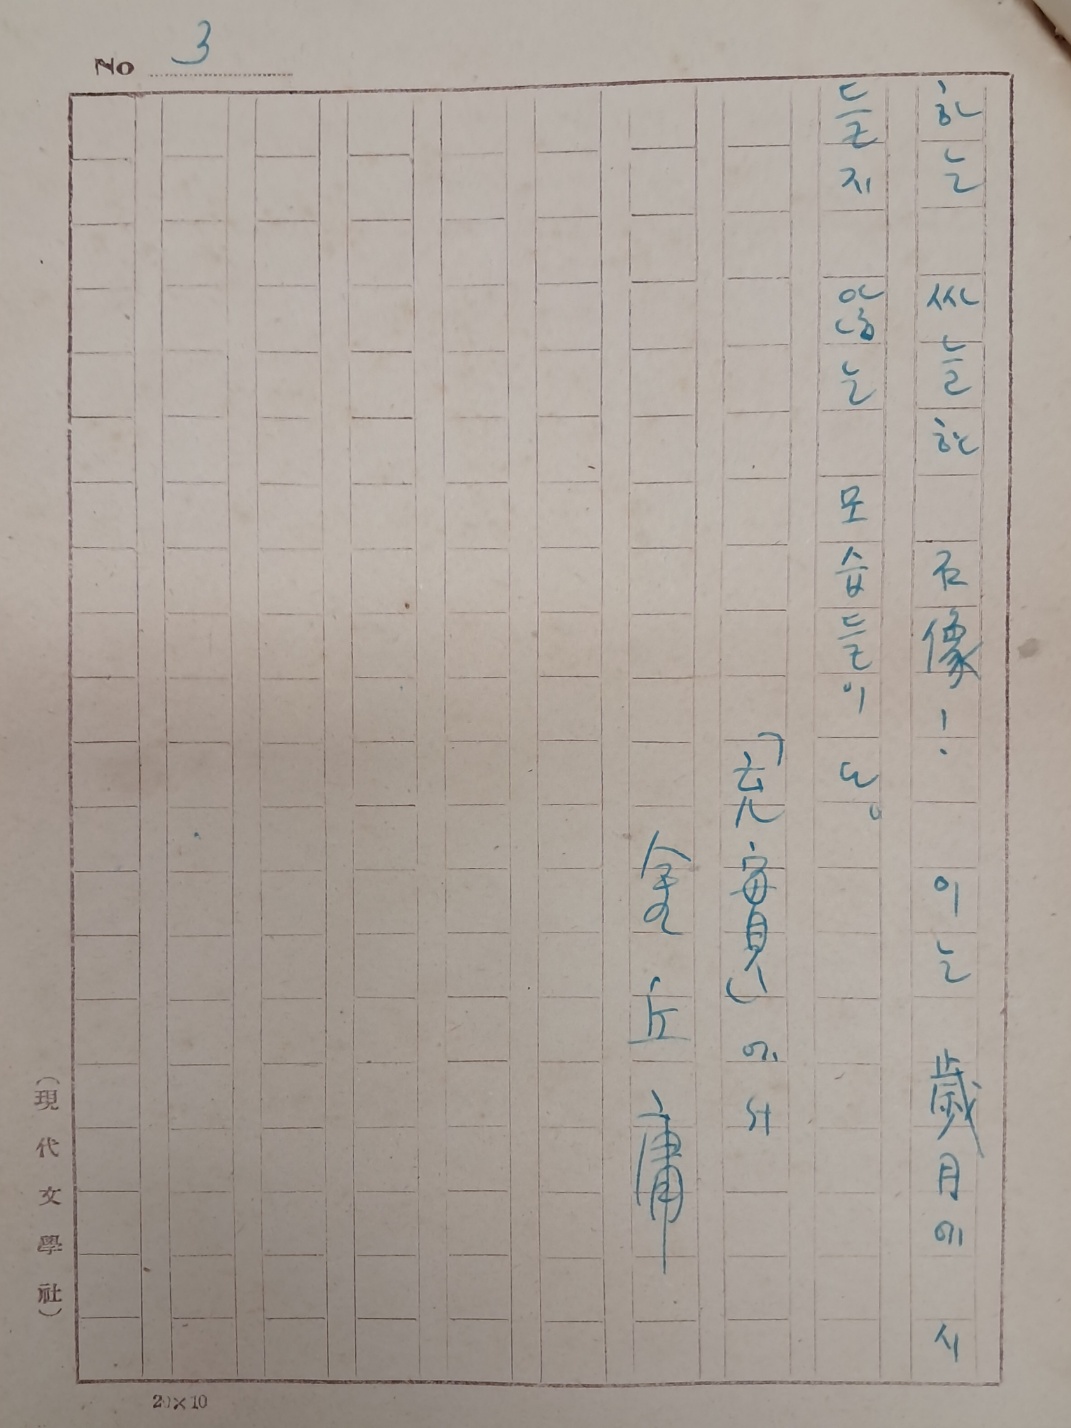 No 3
하는 싸늘한 石像! 이는 歲月에 시
들지 않는 모습들이다。
「充實」에서
金丘庸
(現代文學社)
20×10